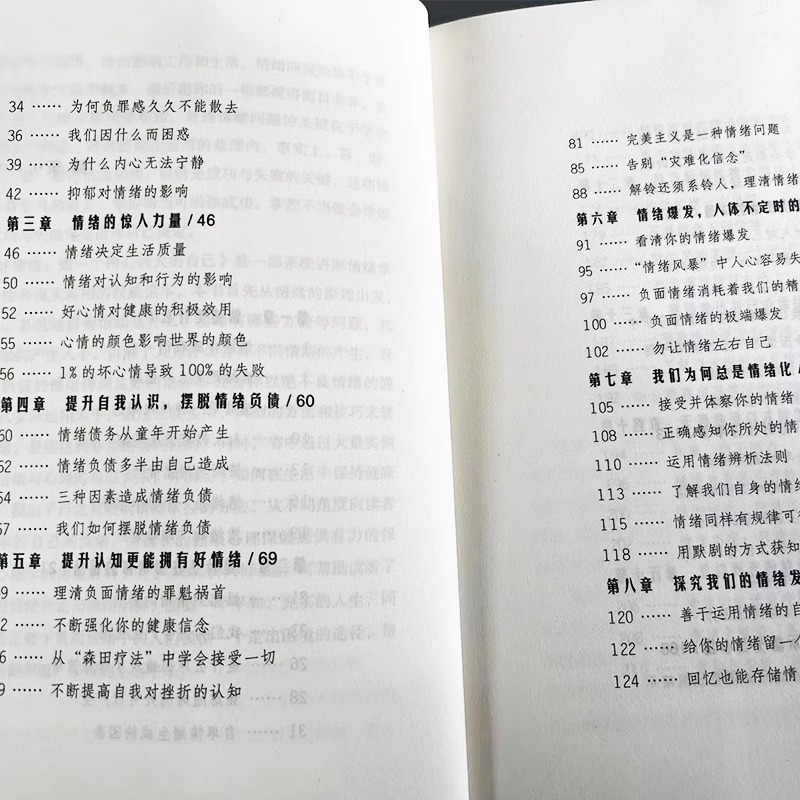 34 …… 为何负罪感久久不能散去
36 …… 我们因什么而困惑
39 …… 为什么内心无法宁静
42 …… 抑郁对情绪的影响
第三章 情绪的惊人力量 / 46
46 …… 情绪决定生活质量
50 …… 情绪对认知和行为的影响
52 …… 好心情对健康的积极效用
55 …… 心情的颜色影响世界的颜色
56 …… 1%的坏心情导致100%的失败
第四章 提升自我认识，摆脱情绪负债 / 60
60 …… 情绪债务从童年开始产生
52 …… 情绪负债多半由自己造成
54 …… 三种因素造成情绪负债
57 …… 我们如何摆脱情绪负债
第五章 提升认知更能拥有好情绪 / 69
9 …… 理清负面情绪的罪魁祸首
2 …… 不断强化你的健康信念
6 …… 从“森田疗法”中学会接受一切
9 …… 不断提高自我对挫折的认知
81 …… 完美主义是一种情绪问题
85 …… 告别“灾难化信念”
88 …… 解铃还须系铃人，理清情绪
第六章 情绪爆发，人体不定时的
91 …… 看清你的情绪爆发
95 …… “情绪风暴”中人心容易失
97 …… 负面情绪消耗着我们的精
100 …… 负面情绪的极端爆发
102 …… 勿让情绪左右自己
第七章 我们为何总是情绪化 /
105 …… 接受并体察你的情绪
108 …… 正确感知你所处的情
110 …… 运用情绪辨析法则
113 …… 了解我们自身的情绪
115 …… 情绪同样有规律可
118 …… 用默剧的方式获知
第八章 探究我们的情绪发
120 …… 善于运用情绪的自
122 …… 给你的情绪留一个
124 …… 回忆也能存储情